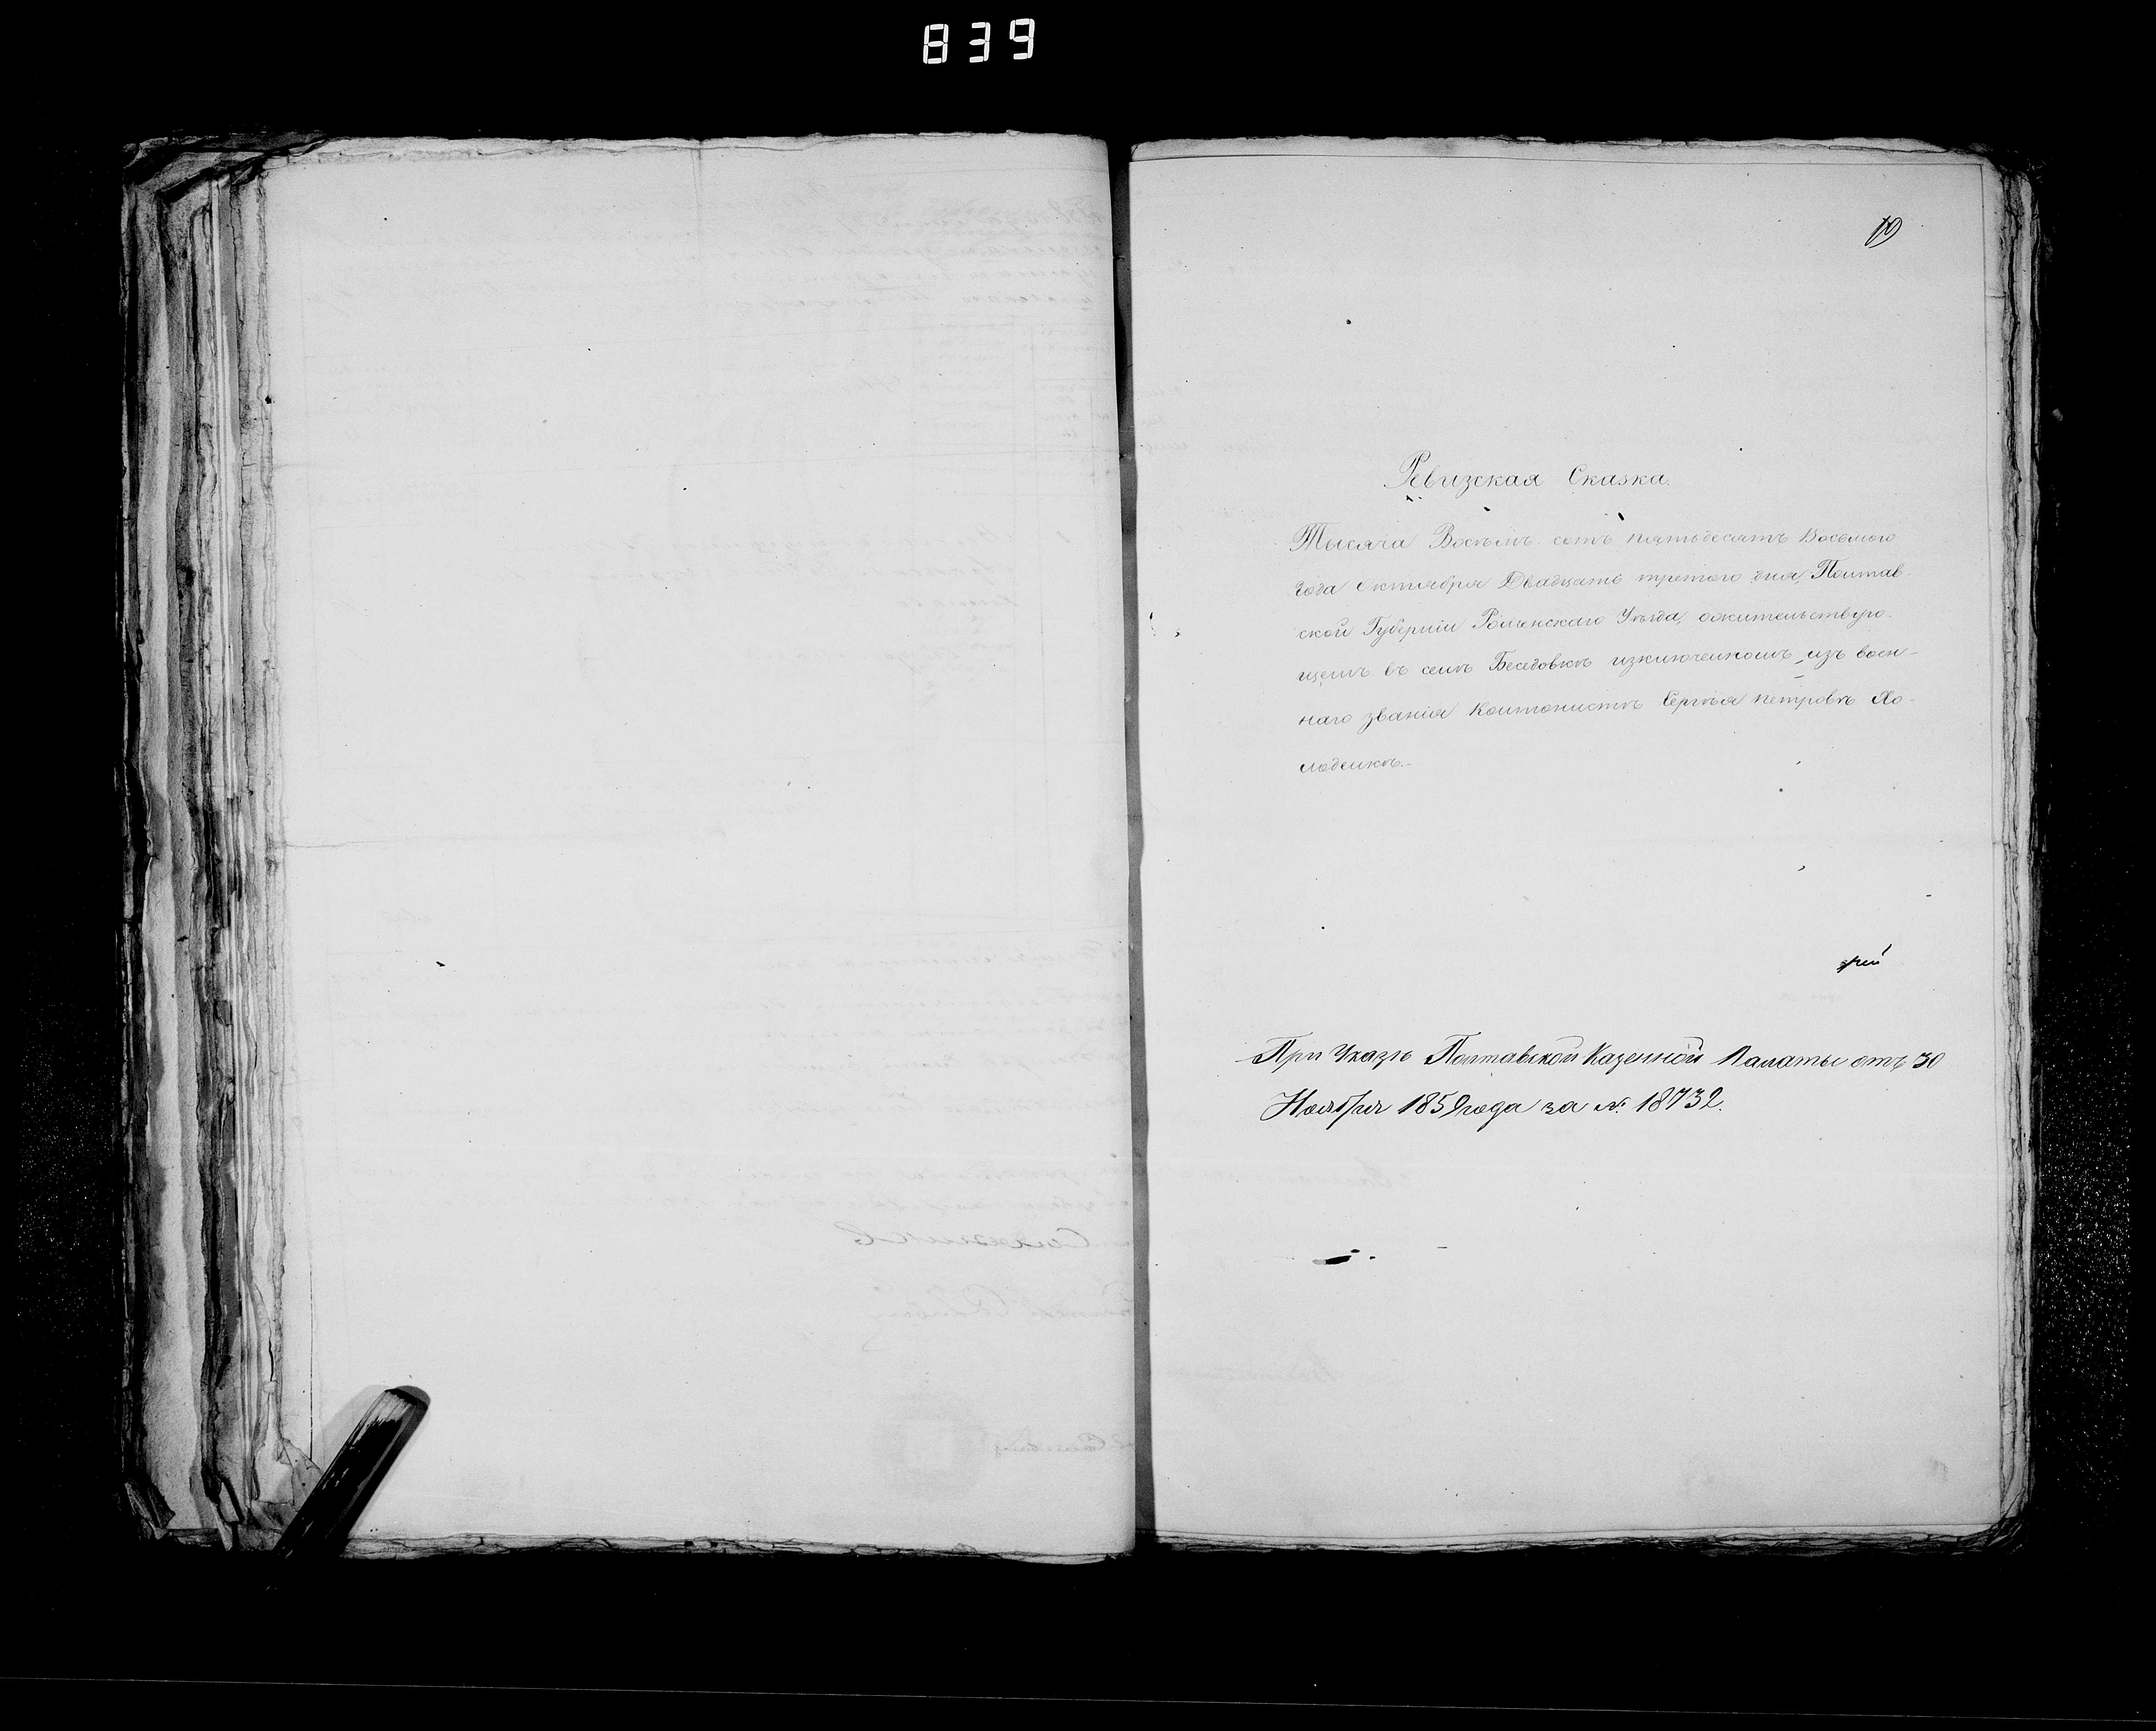 839
19
Ревизская Сказка.
Тысяча Восемъ сотъ пятьдесятъ Восьмого
года Октября Двадцать третого дня, Полтав-
ской Губерніи Роменскаго Уѣзда, ожительствую-
щемъ въ селѣ Беседовкѣ изключенномъ изъ воен-
наго званія Контонистѣ Сергѣя Петровѣ Хо-
лоденкѣ.-
При Указѣ Полтавской Казенной Палаты отъ 30
Ноября 1859 года за № 18732.